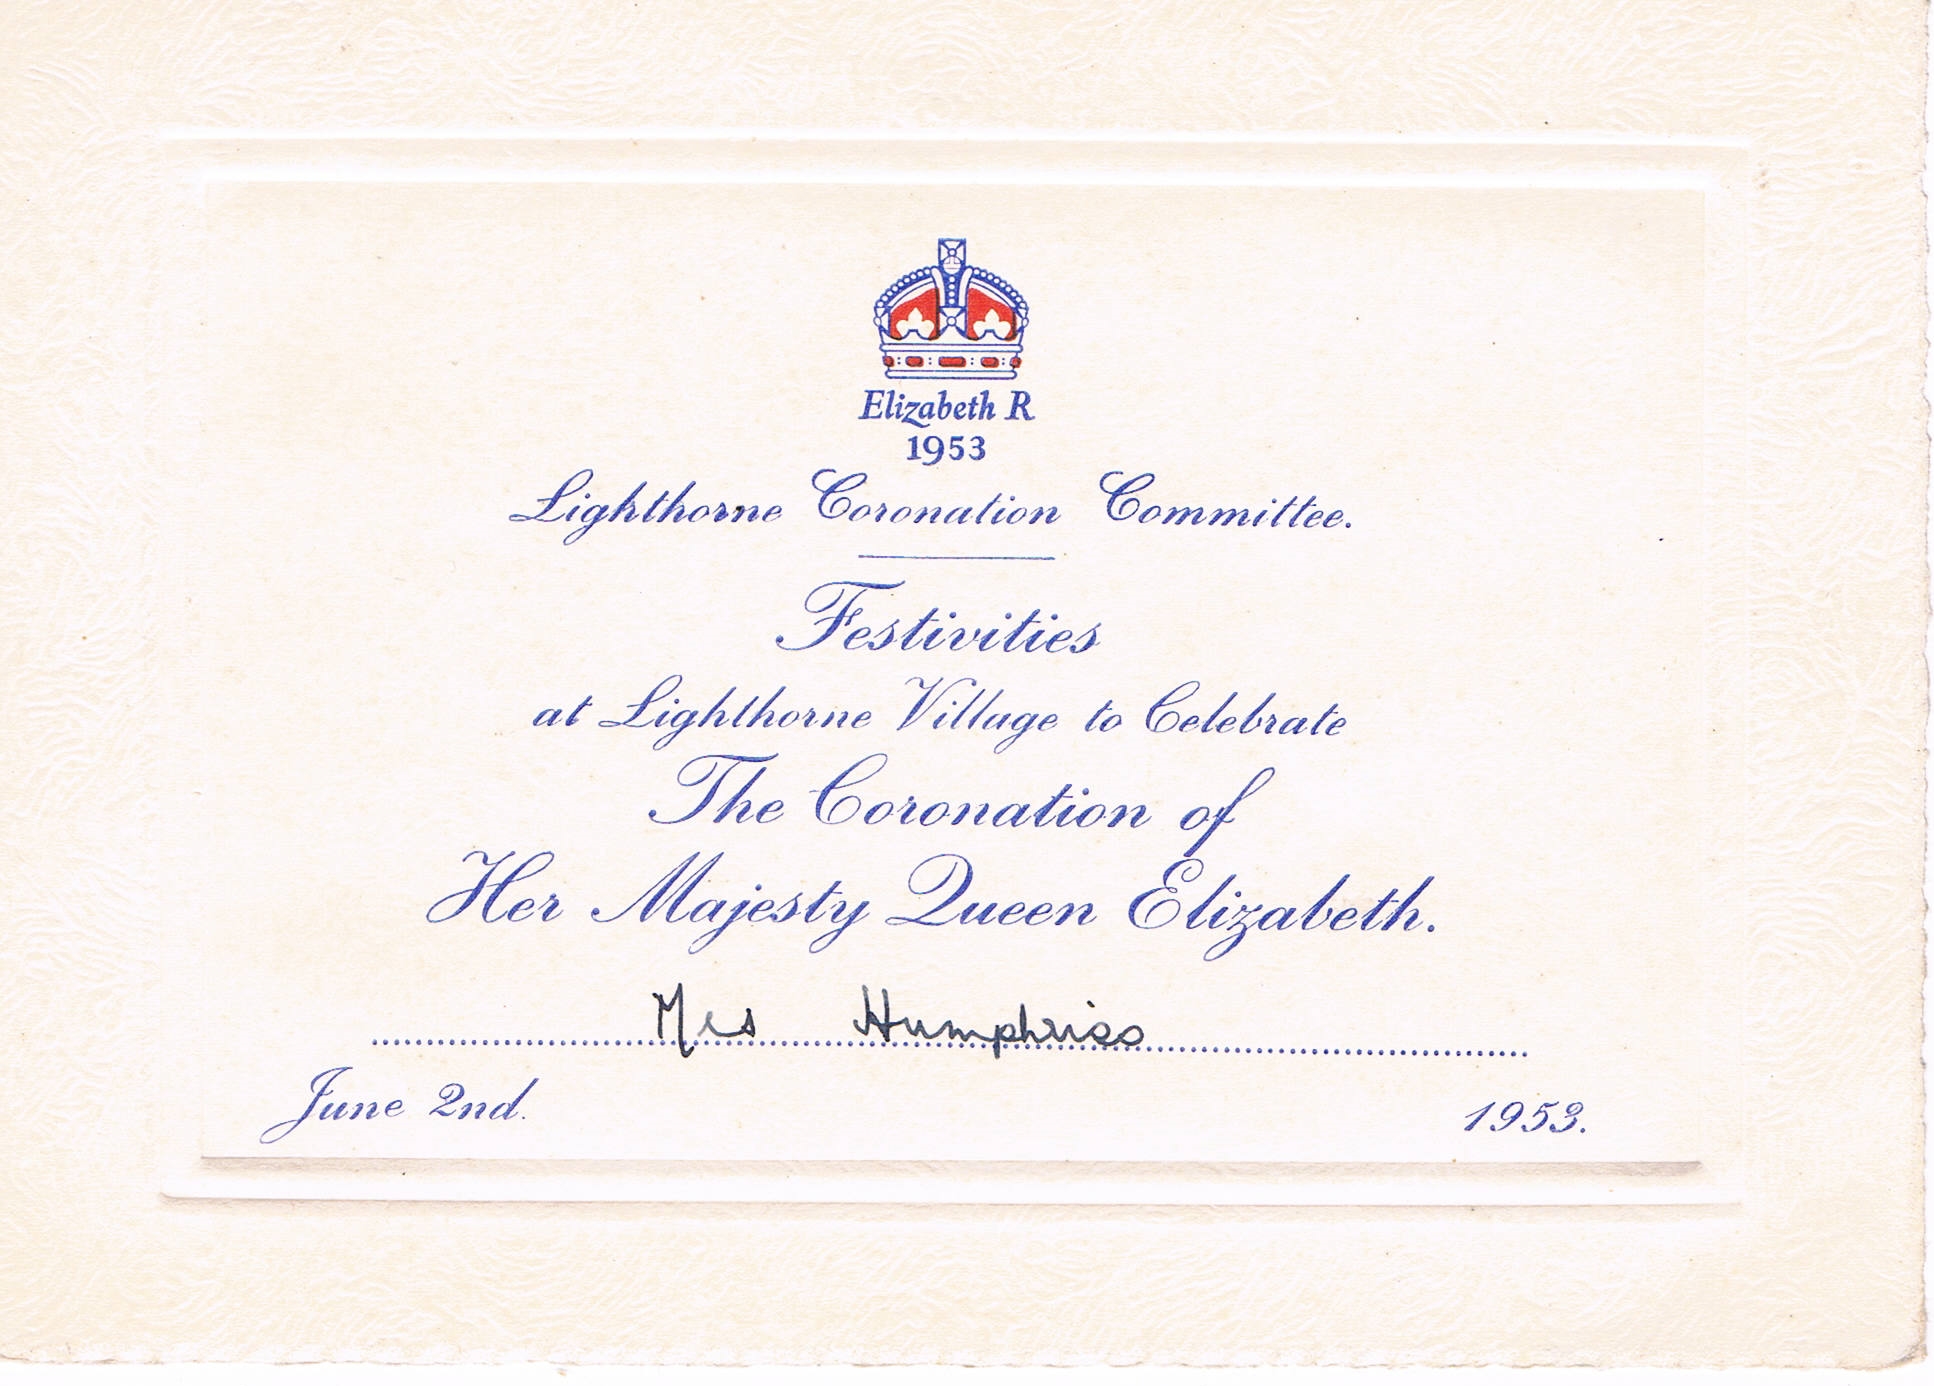 Elizabeth R
1953
Lighthorne Coronation Committee.
Festivities
at Lighthorne Village to Celebrate
The Coronation of
Her Majesty Queen Elizabeth.
Mrs Humphriss
June 2nd. 1953.